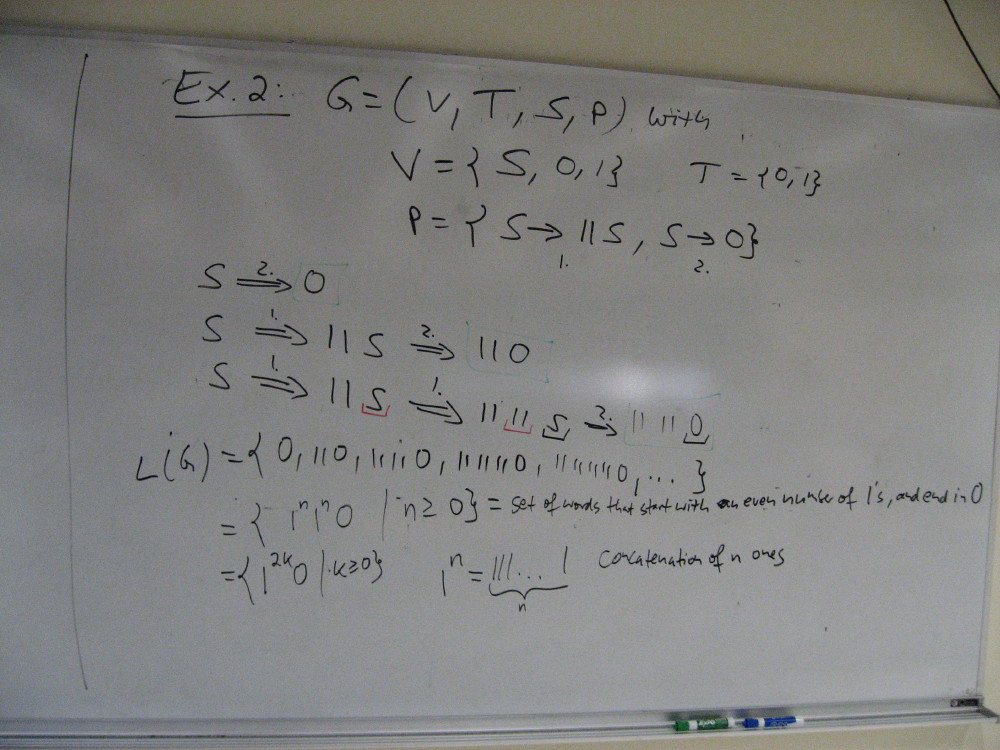 Ex. 2: G = (V, T, S, P) with
V = { S, 0, 1 } T = {0, 1}
P = { S → 11S, S → 0 }
1. 2.
S ⇒ 0
2.
S ⇒ 11S ⇒ 110
1. 2.
S ⇒ 11S ⇒ 1111S ⇒ 11110
1. 1. 2.
L(G) = { 0, 110, 11110, 1111110, 111111110, ... }
= { 1ⁿ1ⁿ0 | n ≥ 0 } = set of words that start with an even number of 1's, and end in 0
= { 1²ᵏ0 | k ≥ 0 } 1ⁿ = 111...1 Concatenation of n ones
n